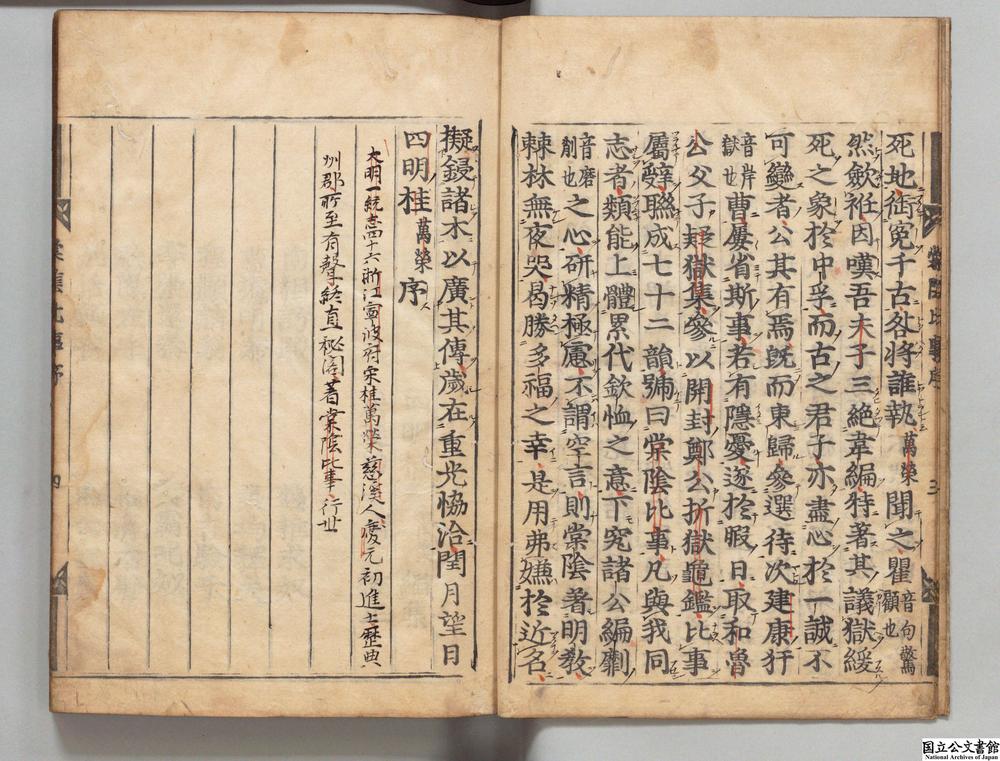 死地銜冤千古咎將誰執萬榮聞之瞿音句驚顧也
然斂袵因嘆吾夫子三絶韋編特著其議獄緩
死之象於中孚而古之君子亦盡心於一誠不
可變者公其有焉旣而東歸參選待次建康犴
音岸獄也曹屢省斯事若有隱憂遂於暇日取和魯
公父子疑獄集參以開封鄭公折獄龜鑑比事
屬辭聯成七十二韻號曰棠陰比事凡與我同
志者類能上體累代欽恤之意下究諸公編劘
音磨削也之心研精極慮不謂空言則棠陰著明教
棘林無夜哭曷勝多福之幸是用弗嫌於近名
擬鋟諸木以廣其傳歲在重光協洽閏月望日
四明桂萬榮序
大明一統志四十六浙江寧波府宋桂萬榮慈溪人慶元初進士歷典
州郡所至有聲終直祕閣著棠陰比事行世
棠陰比事序
三
四
国立公文書館
National Archives of Japan